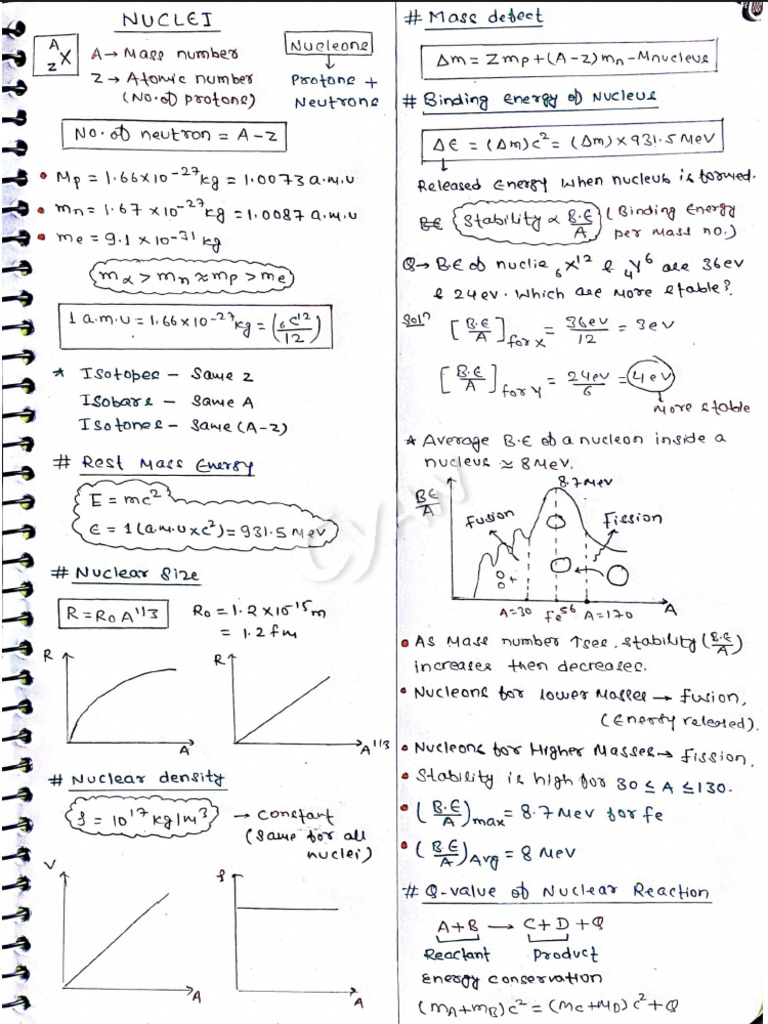 NUCLEI
A
Z X
A → Mass number
Z → Atomic number
(No. of protons)
Nucleons
↓
Protons +
Neutrons
No. of neutron = A-Z
• Mp = 1.66×10⁻²⁷ kg = 1.0073 a.m.u
• mn = 1.67 ×10⁻²⁷ kg = 1.0087 a.m.u
• me = 9.1 × 10⁻³¹ kg
mα > mn ≈ mp > me
1 a.m.u = 1.66×10⁻²⁷ kg = (₆C¹²/12)
* Isotopes – Same Z
Isobars – Same A
Isotones – Same (A-Z)
# Rest Mass Energy
E = mc²
E = 1(a.m.u × c²) = 931.5 MeV
# Nuclear Size
R = R₀ A^1/3
R₀ = 1.2 × 10⁻¹⁵ m
= 1.2 fm
R
A
R
A^1/3
# Nuclear density
ρ = 10¹⁷ kg/m³
→ constant
(Same for all
nuclei)
V
A
ρ
A
# Mass defect
Δm = Zmp + (A-Z)mn - Mnucleus
# Binding energy of Nucleus
ΔE = (Δm)c² = (Δm) × 931.5 MeV
Released Energy when nucleus is formed.
BE
Stability ∝ B.E/A
(Binding Energy
per Mass no.)
Q→ B.E of nuclie ₆X¹² & ₄Y⁶ are 36ev
& 24ev. Which are more stable?
Solⁿ [B.E/A] for X = 36ev/12 = 3ev
[B.E/A] for Y = 24ev/6 = 4ev
More stable
* Average B.E of a nucleon inside a
nucleus ≈ 8 MeV.
BE/A
8.7 MeV
Fusion
Fission
A=30
Fe⁵⁶
A=170
A
• As Mass number ↑ses, stability (B.E/A)
increases then decreases.
• Nucleons for lower Masses → fusion,
(Energy released).
• Nucleons for Higher Masses → fission.
• Stability is high for 30 ≤ A ≤ 130.
• (B.E/A)max = 8.7 Mev for fe
• (B.E/A)Avg = 8 MeV
# Q-value of Nuclear Reaction
A+B → C+D + Q
Reactant
Product
Energy conservation
(mA+mB)c² = (Mc+MD)c² + Q